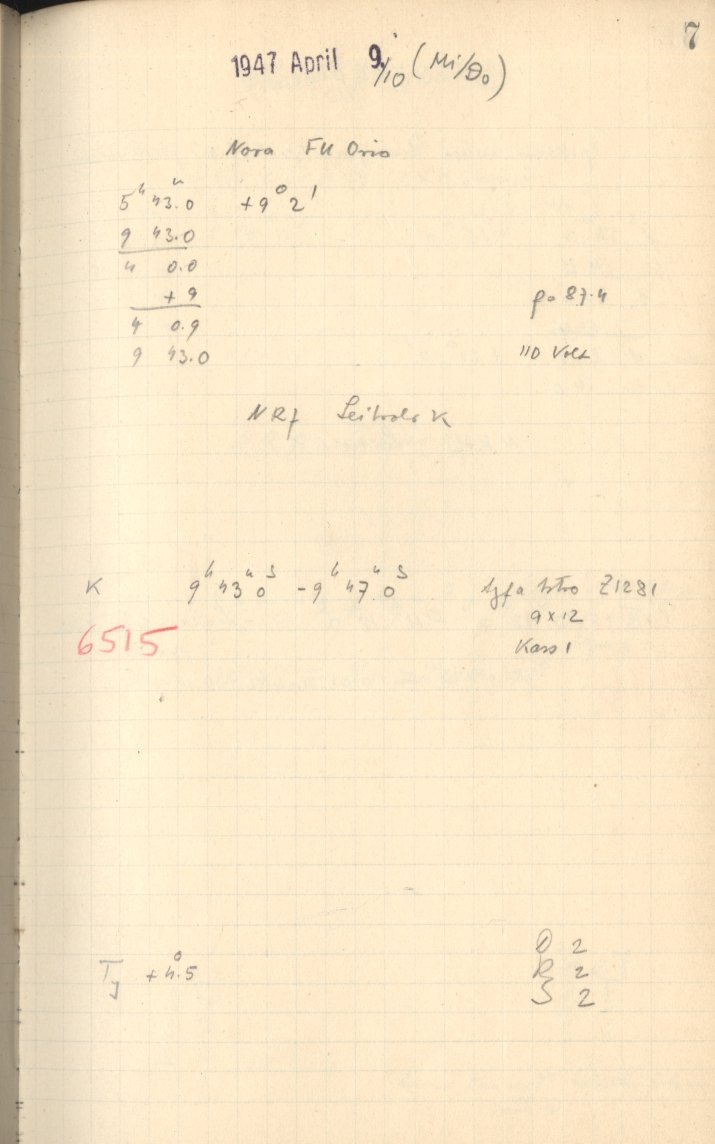 7
1947 April 9/10 (Mi/Do)
Nova FU Orio
5ʰ 43.ᵐ0 +9° 2'
9 43.0
4 0.0
+9
4 0.9
9 43.0
p = 87.4
110 Volt
K
9ʰ 43ᵐ 0ˢ - 9ʰ 47ᵐ 0ˢ
Agfa Astro Z1281
9 x 12
Kass 1
6515
T +4.°5
D 2
R 2
S 2